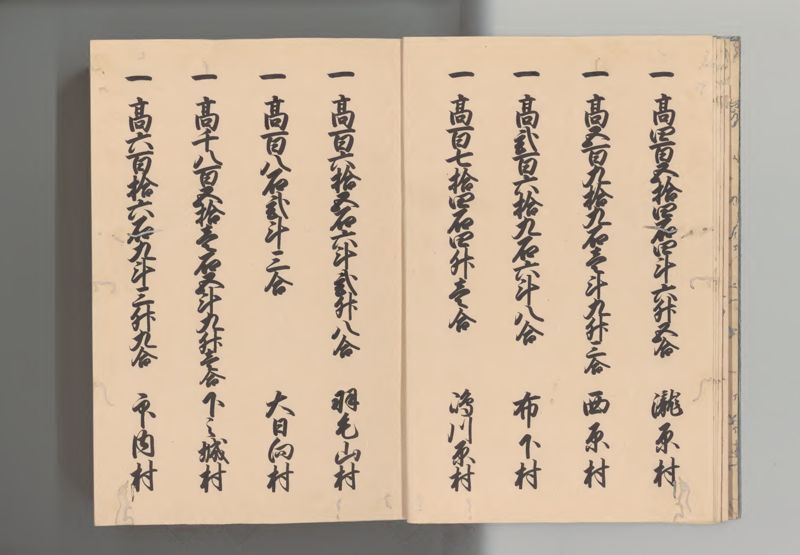 一 高四百五拾四石四斗六升五合 瀧原村
一 高五百九拾九石壱斗九升三合 西原村
一 高弐百六拾九石六斗八合 布下村
一 高百七拾四石四升壱合 嶋川原村
一 高百六拾五石六斗弐升八合 羽毛山村
一 高百八石弐斗三合 大日向村
一 高千八百五拾壱石五斗九升壱合 下之城村
一 高六百拾六石九斗三升九合 市内村